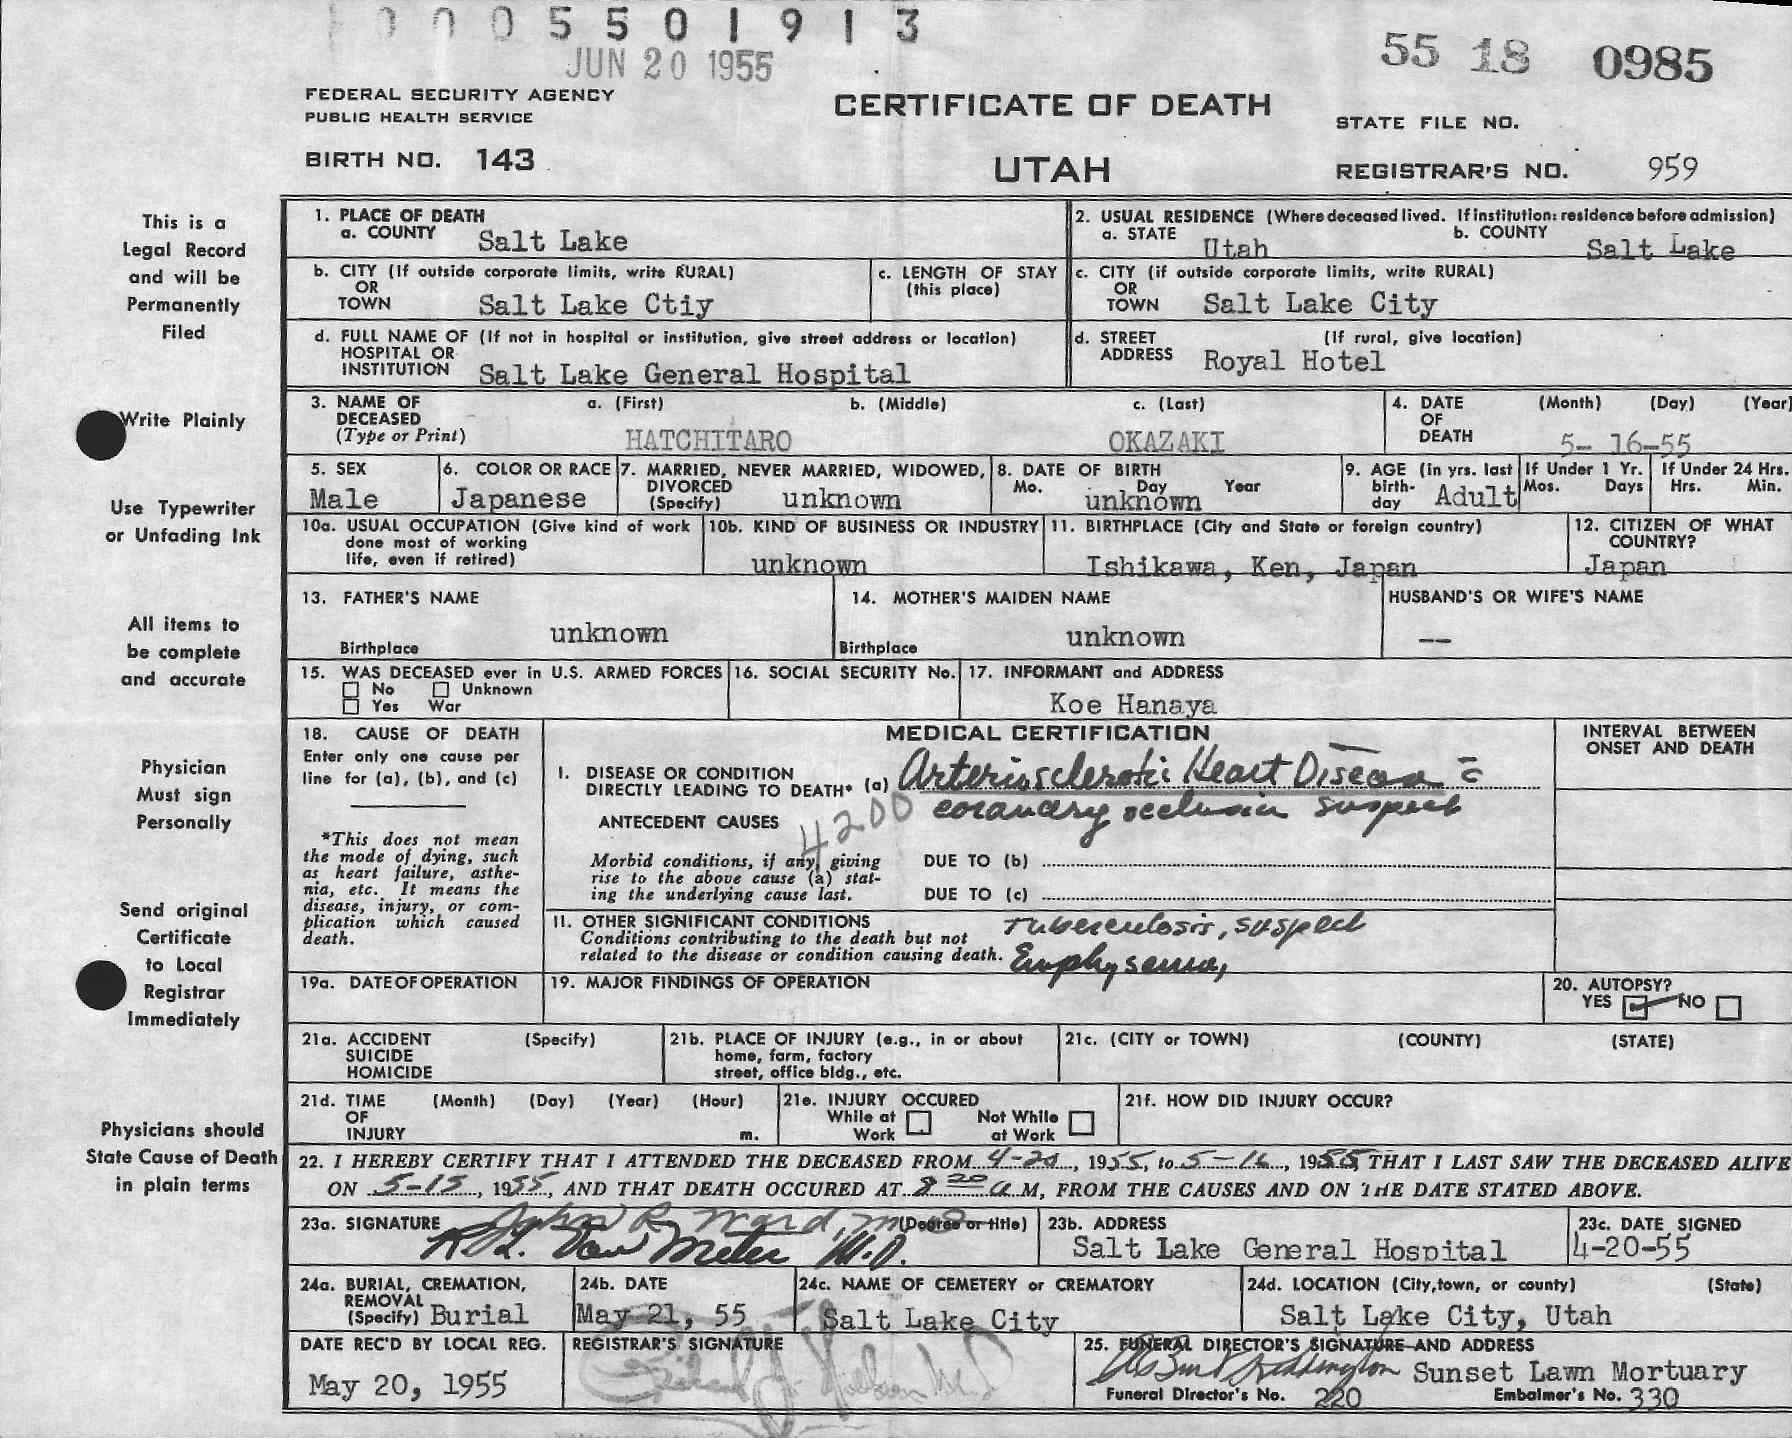 0005501913
JUN 20 1955
55 18 0985
FEDERAL SECURITY AGENCY
PUBLIC HEALTH SERVICE
CERTIFICATE OF DEATH
STATE FILE NO.
BIRTH NO. 143
UTAH
REGISTRAR'S NO. 959
This is a
Legal Record
and will be
Permanently
Filed
Write Plainly
Use Typewriter
or Unfading Ink
All items to
be complete
and accurate
Physician
Must sign
Personally
Send original
Certificate
to Local
Registrar
Immediately
Physicians should
State Cause of Death
in plain terms
1. PLACE OF DEATH
a. COUNTY Salt Lake
2. USUAL RESIDENCE (Where deceased lived. If institution: residence before admission)
a. STATE Utah b. COUNTY Salt Lake
b. CITY (If outside corporate limits, write RURAL)
OR
TOWN Salt Lake Ctiy
c. LENGTH OF STAY
(this place)
c. CITY (if outside corporate limits, write RURAL)
OR
TOWN Salt Lake City
d. FULL NAME OF (If not in hospital or institution, give street address or location)
HOSPITAL OR
INSTITUTION Salt Lake General Hospital
d. STREET (If rural, give location)
ADDRESS Royal Hotel
3. NAME OF DECEASED
(Type or Print)
a. (First) b. (Middle) c. (Last)
HATCHITARO OKAZAKI
4. DATE OF DEATH
(Month) (Day) (Year)
5- 16-55
5. SEX
Male
6. COLOR OR RACE
Japanese
7. MARRIED, NEVER MARRIED, WIDOWED,
DIVORCED
(Specify) unknown
8. DATE OF BIRTH
Mo. Day Year
unknown
9. AGE (in yrs. last
birth-
day Adult
If Under 1 Yr.
Mos. Days
If Under 24 Hrs.
Hrs. Min.
10a. USUAL OCCUPATION (Give kind of work
done most of working
life, even if retired)
10b. KIND OF BUSINESS OR INDUSTRY
unknown
11. BIRTHPLACE (City and State or foreign country)
Ishikawa, Ken, Japan
12. CITIZEN OF WHAT
COUNTRY?
Japan
13. FATHER'S NAME
unknown
Birthplace
14. MOTHER'S MAIDEN NAME
unknown
Birthplace
HUSBAND'S OR WIFE'S NAME
--
15. WAS DECEASED ever in U.S. ARMED FORCES
No Unknown
Yes War
16. SOCIAL SECURITY No.
17. INFORMANT and ADDRESS
Koe Hanaya
18. CAUSE OF DEATH
Enter only one cause per
line for (a), (b), and (c)
*This does not mean
the mode of dying, such
as heart failure, asthe-
nia, etc. It means the
disease, injury, or com-
plication which caused
death.
MEDICAL CERTIFICATION
INTERVAL BETWEEN
ONSET AND DEATH
I. DISEASE OR CONDITION
DIRECTLY LEADING TO DEATH* (a) Arteriosclerotic Heart Disease c̄
coronary occlusion suspect
ANTECEDENT CAUSES
4200
Morbid conditions, if any, giving
rise to the above cause (a) stat-
ing the underlying cause last.
DUE TO (b)
DUE TO (c)
II. OTHER SIGNIFICANT CONDITIONS
Conditions contributing to the death but not
related to the disease or condition causing death.
Tuberculosis, suspect
Emphysema,
19a. DATE OF OPERATION
19. MAJOR FINDINGS OF OPERATION
20. AUTOPSY?
YES NO
21a. ACCIDENT (Specify)
SUICIDE
HOMICIDE
21b. PLACE OF INJURY (e.g., in or about
home, farm, factory
street, office bldg., etc.
21c. (CITY or TOWN) (COUNTY) (STATE)
21d. TIME (Month) (Day) (Year) (Hour)
OF
INJURY m.
21e. INJURY OCCURED
While at Work Not While at Work
21f. HOW DID INJURY OCCUR?
22. I HEREBY CERTIFY THAT I ATTENDED THE DECEASED FROM 4-20, 1955, to 5-16, 1955, THAT I LAST SAW THE DECEASED ALIVE
ON 5-15, 1955, AND THAT DEATH OCCURED AT 8 20 a M, FROM THE CAUSES AND ON THE DATE STATED ABOVE.
23a. SIGNATURE John R. Ward, MD (Degree or title)
Van Meter M.D.
23b. ADDRESS
Salt Lake General Hospital
23c. DATE SIGNED
4-20-55
24a. BURIAL, CREMATION,
REMOVAL
(Specify) Burial
24b. DATE
May 21, 55
24c. NAME OF CEMETERY or CREMATORY
Salt Lake City
24d. LOCATION (City, town, or county) (State)
Salt Lake City, Utah
DATE REC'D BY LOCAL REG.
May 20, 1955
REGISTRAR'S SIGNATURE
25. FUNERAL DIRECTOR'S SIGNATURE AND ADDRESS
Sunset Lawn Mortuary
Funeral Director's No. 220 Embalmer's No. 330